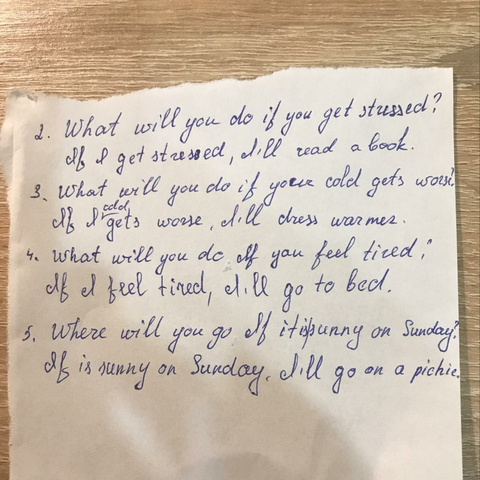 2. What will you do if you get stressed?
If I get stressed, I'll read a book.
3. What will you do if your cold gets worse
If I cold gets worse, I'll dress warmer.
4. What will you do If you feel tired?
If I feel tired, I'll go to bed.
5. Where will you go If it is sunny on Sunday?
If is sunny on Sunday, I'll go on a picnic.